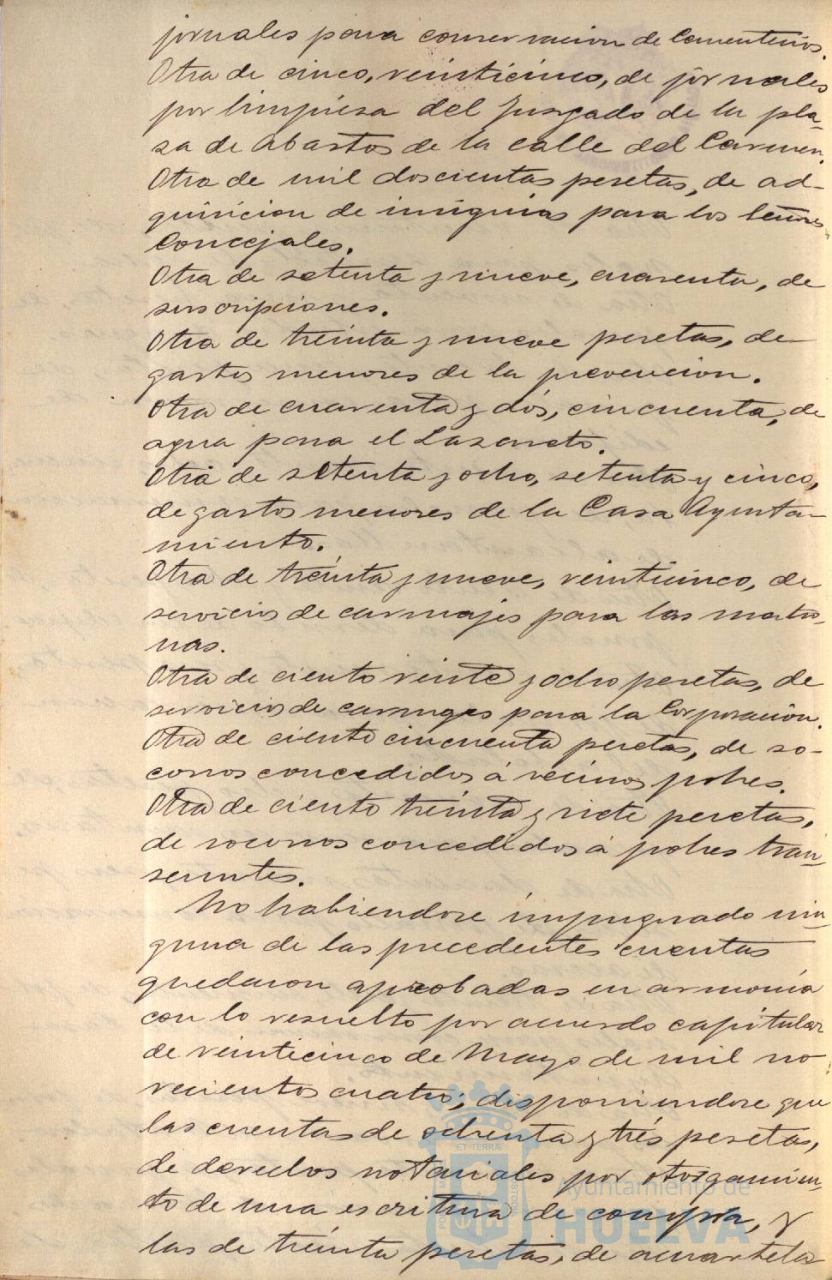 jornales para conservacion de Cementerios.
Otra de cinco, veinticinco, de jornales
por limpiesa del Juzgado de la pla-
sa de Abastos de la calle del Carmen.
Otra de mil doscientas pesetas, de ad-
quisicion de insignias para los Señores
Concejales.
Otra de setenta y nueve, cuarenta, de
suscripciones.
Otra de treinta y nueve pesetas, de
gastos menores de la prevencion.
Otra de cuarenta y dós, cincuenta, de
agua para el Lazareto.
Otra de setenta y ocho, setenta y cinco,
de gastos menores de la Casa Ayunta-
miento.
Otra de treinta y nueve, veinticinco, de
servicios de carruajes para las matro-
nas.
Otra de ciento veinte y ocho pesetas, de
servicios de carruages para la Corporacion.
Otra de ciento cincuenta pesetas, de so-
corros concedidos á vecinos pobres.
Otra de ciento treinta y siete pesetas,
de socorros concedidos á pobres tran-
seuntes.
No habiendose impugnado nin-
guna de las precedentes cuentas
quedaron aprobadas en armonía
con lo resuelto por acuerdo capitular
de veinticinco de Mayo de mil no-
vecientos cuatro; disponiendose que
las cuentas de ochenta y trés pesetas,
de derechos notariales por otorgamien-
to de una escritura de compra, y
las de treinta pesetas, de acuartela
Ayuntamiento de
HUELVA